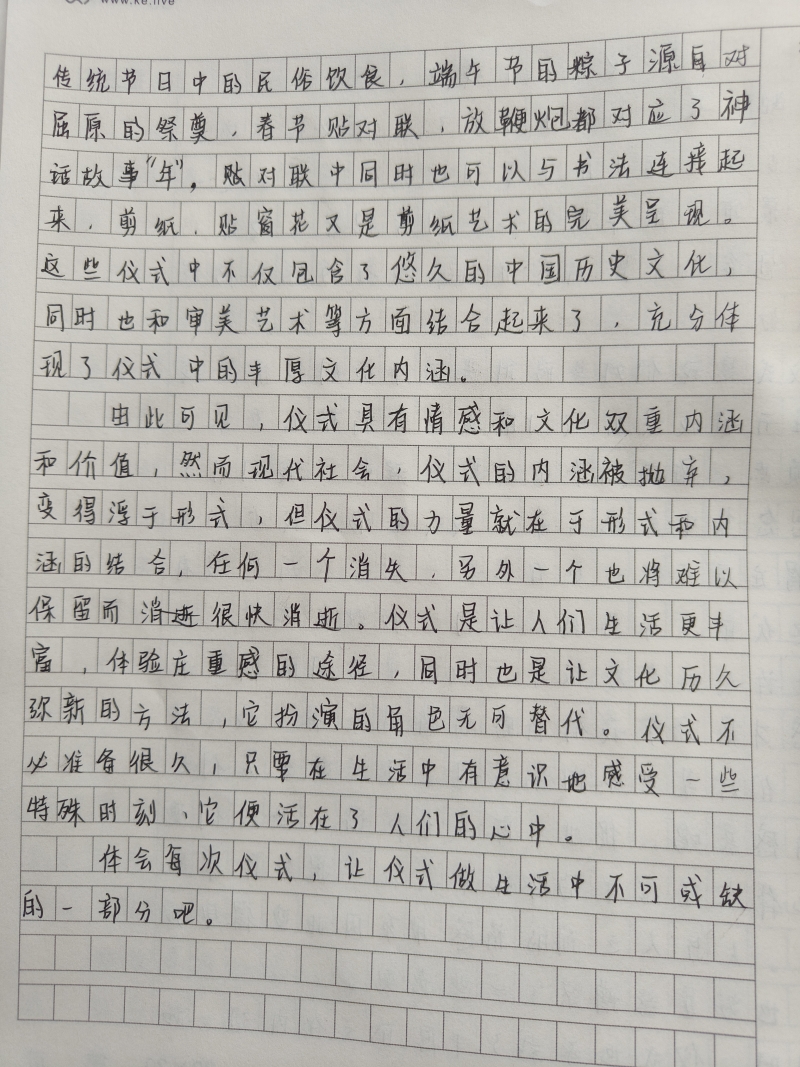 www.ke.live
传统节日中的民俗饮食，端午节的粽子源自对
屈原的祭奠，春节贴对联，放鞭炮都对应了神
话故事“年”，贴对联中同时也可以与书法连接起
来，剪纸，贴窗花又是剪纸艺术的完美呈现。
这些仪式中不仅包含了悠久的中国历史文化，
同时也和审美艺术等方面结合起来了，充分体
现了仪式中的丰厚文化内涵。
由此可见，仪式具有情感和文化双重内涵
和价值，然而现代社会，仪式的内涵被抛弃，
变得浮于形式，但仪式的力量就在于形式和内
涵的结合，任何一个消失，另外一个也将难以
保留而消逝很快消逝。仪式是让人们生活更丰
富，体验庄重感的途径，同时也是让文化历久
弥新的方法，它扮演的角色无可替代。仪式不
必准备很久，只要在生活中有意识地感受一些
特殊时刻，它便活在了人们的心中。
体会每次仪式，让仪式做生活中不可或缺
的一部分吧。